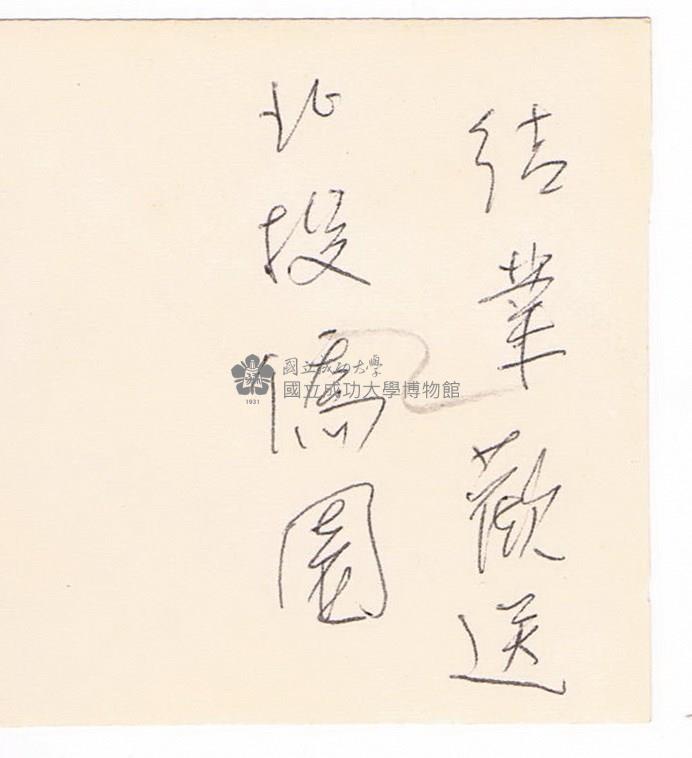 結業歡送
北投僑園
國立成功大學
國立成功大學博物館
1931